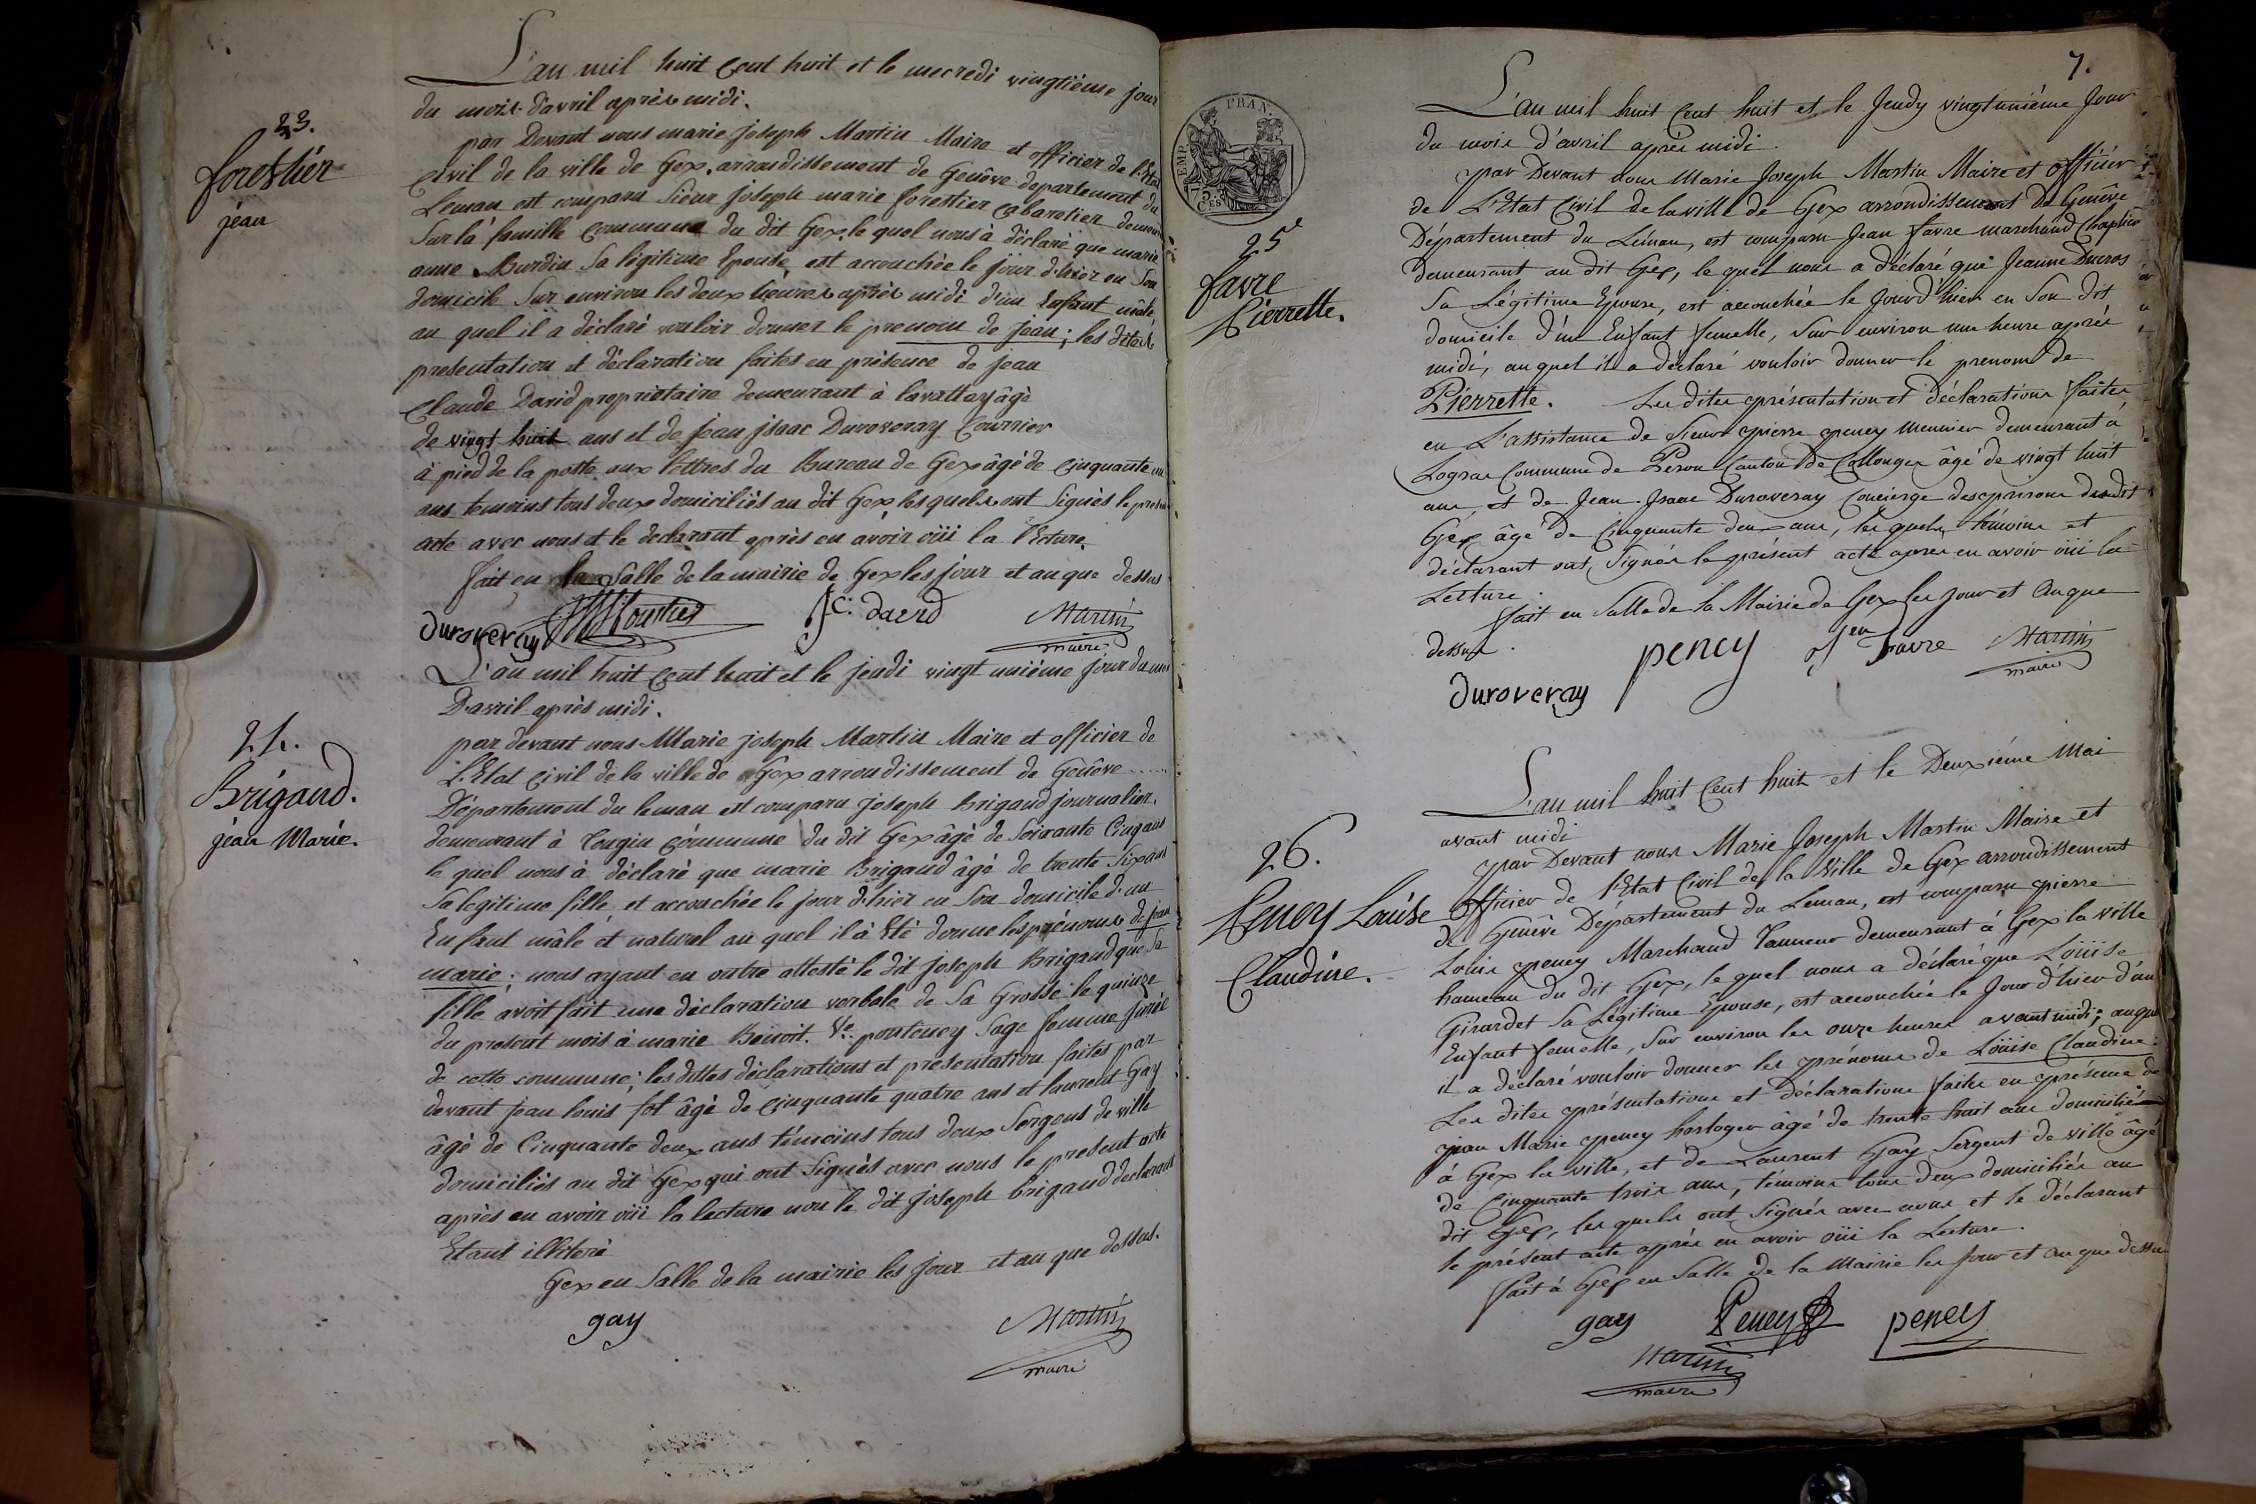 23.
forestier
jean
L'an mil huit Cent huit et le mecredi vingtième jour
du mois d'avril après midi.
par Devant nous marie joseph Martin Maire et officier de l'Etat
Civil de la ville de Gex, arrondissement de Genêve departement du
Leman est comparu Sieur joseph marie forestier Cabaretier demeurant
Sur la famille Commune du dit Gex, le quel nous à déclaré que marie
anne Burdin Sa légitime Epouse, est accouchée le jour d'hier en Son
domicile Sur environ les deux heures après midi d'un Enfant mâle,
au quel il a déclaré vouloir donner le prenom de jean; les dites
presentation et déclaration faites en présence de jean
Claude David propriétaire demeurant à lavattay âgé
de vingt huit ans et de jean jsaac Duroveray Courrier
à pied de la poste aux lettres du Bureau de Gex âgé de Cinquante un
ans temoins tous deux domiciliés au dit Gex les quels ont Signés le present
acte avec nous et le declarant après en avoir oüi la lecture.
fait en la Salle de la mairie de Gex les jour et an que dessus
Duroveray JC: david Martin
maire
24.
Brigand.
jean Marie.
L'an mil huit Cent huit et le jeudi vingt unième jour du mois
D'avril après midi.
par devant nous Marie joseph Martin Maire et officier de
L'Etat Civil de la ville de Gex arrondissement de Genêve
Département du leman est comparu joseph Brigand journalier,
demeurant à Tougin Commune du dit Gex âgé de Soixante Cinq ans
le quel nous à déclaré que marie Brigand âgé de trente Six ans
Sa legitime fille et accouchée le jour d'hier en Son domicile d'un
Enfant mâle et naturel au quel il à Eté donne les prénoms de jean
marie; nous ayant en outre attesté le dit joseph Brigand que Sa
fille avoit fait une déclaration verbale de Sa Grosse le quinze
du present mois à marie Benoit Ve. pouteney Sage femme jurée
de cette commune; les dittes déclarations et présentation faites par
devant jean louis fol âgé de Cinquante quatre ans et laurent Gay
âgé de Cinquante deux ans témoins tous deux Sergens de ville
domiciliés au dit Gex qui ont Signés avec nous le present acte
après en avoir oüi la lecture non le dit joseph brigand declarant
Etant illiteré
Gex en Salle de la mairie les jour et an que dessus.
gay Martin
maire
7.
25e
favre
Pierrette.
L'an mil huit Cent huit et le Jeudy vingtunième Jour
du mois d'avril après midi.
par Devant nous Marie Joseph Martin Maire et officier
de L'Etat Civil de la ville de Gex arrondissement de Genêve
Département du Léman, est comparu Jean favre marchand Chaplier
demeurant au dit Gex, le quel nous a déclaré que Jeanne Ducros
Sa Légitime Epouse, est accouchée le Jour d'hier en Son dit
domicile d'un Enfant femelle, Sur environ une heure après
midi, au quel il a déclaré vouloir donner le prenom de
Pierrette. Les dites présentation et déclarations faites
en L'assistance de Sieur pierre peney Meunier demeurant à
Logras Commune de Péron Canton de Collonges âgé de vingt huit
ans, et de Jean-Jsaac Duroveray Concierge des prisons du dit
Gex âgé de Cinquante deux ans, les quels témoins et
déclarant ont Signés le présent acte après en avoir oüi la
Lecture.
fait en Salle de la Mairie de Gex les jour et an que
dessus.
peney Jean Favre Martin
maire
Duroveray
26.
Peney Louise
Claudine.
L'an mil huit Cent huit et le Deuxième Mai
avant midi
par Devant nous Marie Joseph Martin Maire et
Officier de l'Etat Civil de la Ville de Gex arrondissement
de Genêve Département du Leman, est comparu pierre
Louis peney Marchand Tanneur demeurant à Gex la ville
hameau du dit Gex, le quel nous a déclaré que Loüise
Girardet Sa Légitime Epouse, est accouchée le Jour d'hier d'un
Enfant femelle, Sur environ les onze heures avant midi; au quel
il a déclaré vouloir donner les prénoms de Loüise Claudine:
Les dites présentations et Déclarations faites en présence de
jean Marie peney horloger âgé de trente huit ans domicilié
à Gex la ville, et de Laurent Gay Sergent de ville âgé
de Cinquante trois ans, témoins tous deux domiciliés au
dit Gex, les quels ont Signés avec nous et le déclarant
le présent acte après en avoir oüi la Lecture.
fait à Gex en Salle de la Mairie les Jour et an que dessus
gay Peney peney
Martin
maire